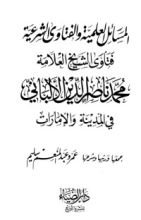 المسائل العلمية والفتاوى الشرعية
فتاوى الشيخ العلامة
محمد ناصر الدين الألباني
في المدينة والإمارات
جمعها ورتبها وشرحها
عمرو عبد المنعم سليم
دار الضياء